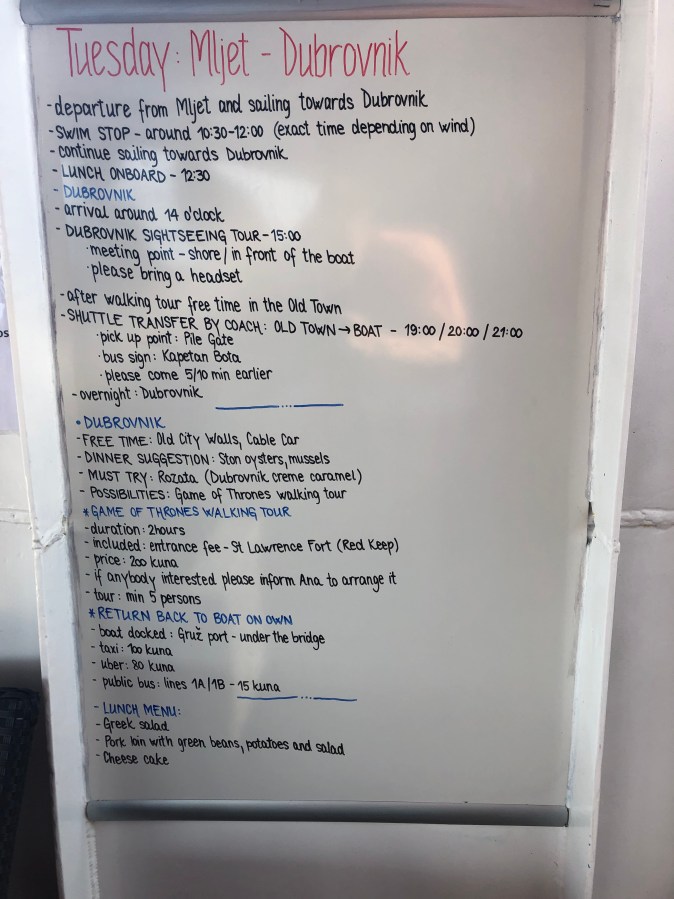 Tuesday: Mljet - Dubrovnik
- departure from Mljet and sailing towards Dubrovnik
- SWIM STOP - around 10:30-12:00 (exact time depending on wind)
- continue sailing towards Dubrovnik
- LUNCH ONBOARD - 12:30
- DUBROVNIK
- arrival around 14 o'clock
- DUBROVNIK SIGHTSEEING TOUR - 15:00
· meeting point - shore / in front of the boat
· please bring a headset
- after walking tour free time in the Old Town
- SHUTTLE TRANSFER BY COACH: OLD TOWN → BOAT - 19:00 / 20:00 / 21:00
· pick up point: Pile Gate
· bus sign: Kapetan Bota
· please come 5/10 min earlier
- overnight: Dubrovnik
• DUBROVNIK
- FREE TIME: Old City Walls, Cable Car
- DINNER SUGGESTION: Ston oysters, mussels
- MUST TRY: Rozata (Dubrovnik creme caramel)
- POSSIBILITIES: Game of Thrones walking tour
* GAME OF THRONES WALKING TOUR
- duration: 2hours
- included: entrance fee - St Lawrence Fort (Red Keep)
- price: 200 kuna
- if anybody interested please inform Ana to arrange it
- tour: min 5 persons
* RETURN BACK TO BOAT ON OWN
- boat docked: Gruž port - under the bridge
- taxi: 100 kuna
- uber: 80 kuna
- public bus: lines 1A/1B - 15 kuna
- LUNCH MENU:
- Greek salad
- Pork loin with green beans, potatoes and salad
- Cheese cake